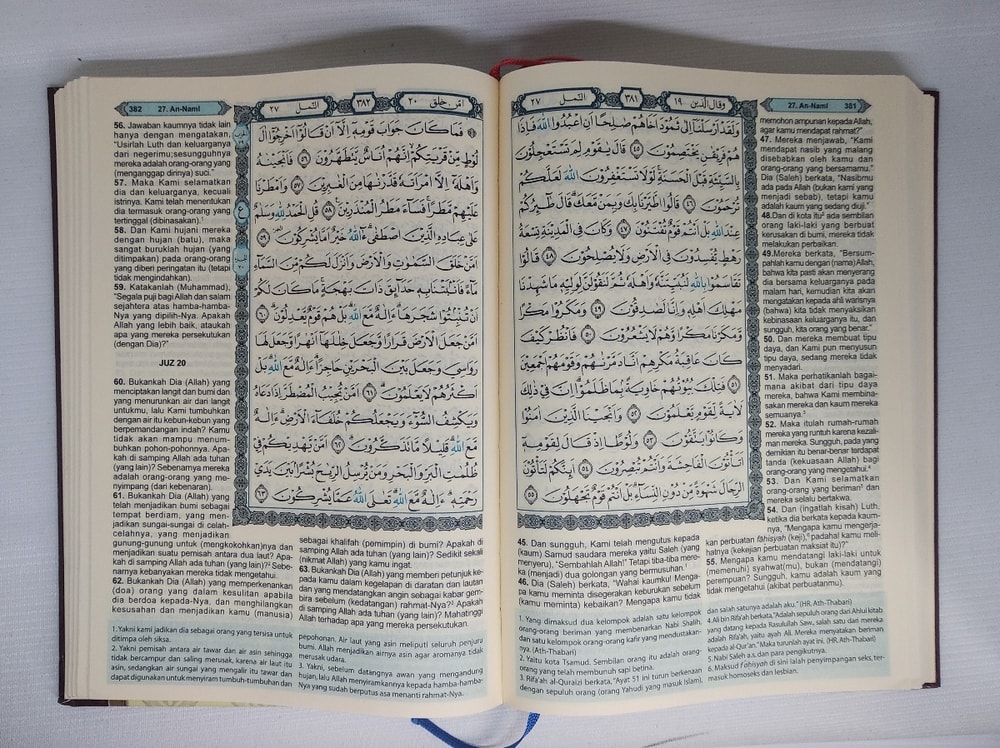 وقال الذين ١٩
٣٨١
النمل ٢٧
27. An-Naml 381
وَلَقَدْ اَرْسَلْنَآ اِلٰى ثَمُوْدَ اَخَاهُمْ صٰلِحًا اَنِ اعْبُدُوا اللّٰهَ فَاِذَا
هُمْ فَرِيْقٰنِ يَخْتَصِمُوْنَ ٤٥ قَالَ يٰقَوْمِ لِمَ تَسْتَعْجِلُوْنَ
بِالسَّيِّئَةِ قَبْلَ الْحَسَنَةِ لَوْلَا تَسْتَغْفِرُوْنَ اللّٰهَ لَعَلَّكُمْ
تُرْحَمُوْنَ ٤٦ قَالُوا اطَّيَّرْنَا بِكَ وَبِمَنْ مَّعَكَ قَالَ طٰۤىِٕرُكُمْ
عِنْدَ اللّٰهِ بَلْ اَنْتُمْ قَوْمٌ تُفْتَنُوْنَ ٤٧ وَكَانَ فِى الْمَدِيْنَةِ تِسْعَةُ
رَهْطٍ يُّفْسِدُوْنَ فِى الْاَرْضِ وَلَا يُصْلِحُوْنَ ٤٨ قَالُوْا
تَقَاسَمُوْا بِاللّٰهِ لَنُبَيِّتَنَّهٗ وَاَهْلَهٗ ثُمَّ لَنَقُوْلَنَّ لِوَلِيِّهٖ مَا شَهِدْنَا
مَهْلِكَ اَهْلِهٖ وَاِنَّا لَصٰدِقُوْنَ ٤٩ وَمَكَرُوْا مَكْرًا
وَّمَكَرْنَا مَكْرًا وَّهُمْ لَا يَشْعُرُوْنَ ٥٠ فَانْظُرْ كَيْفَ
كَانَ عَاقِبَةُ مَكْرِهِمْ اَنَّا دَمَّرْنٰهُمْ وَقَوْمَهُمْ اَجْمَعِيْنَ
٥١ فَتِلْكَ بُيُوْتُهُمْ خَاوِيَةً ۢبِمَا ظَلَمُوْا اِنَّ فِيْ ذٰلِكَ
لَاٰيَةً لِّقَوْمٍ يَّعْلَمُوْنَ ٥٢ وَاَنْجَيْنَا الَّذِيْنَ اٰمَنُوْا
وَكَانُوْا يَتَّقُوْنَ ٥٣ وَلُوْطًا اِذْ قَالَ لِقَوْمِهٖٓ
اَتَأْتُوْنَ الْفَاحِشَةَ وَاَنْتُمْ تُبْصِرُوْنَ ٥٤ اَىِٕنَّكُمْ لَتَأْتُوْنَ
الرِّجَالَ شَهْوَةً مِّنْ دُوْنِ النِّسَاۤءِ بَلْ اَنْتُمْ قَوْمٌ تَجْهَلُوْنَ ٥٥
45. Dan sungguh, Kami telah mengutus kepada
(kaum) Samud saudara mereka yaitu Saleh (yang
menyeru), "Sembahlah Allah!" Tetapi tiba-tiba mere-
ka (menjadi) dua golongan yang bermusuhan.¹
46. Dia (Saleh) berkata, "Wahai kaumku! Menga-
pa kamu meminta disegerakan keburukan sebelum
(kamu meminta) kebaikan? Mengapa kamu tidak
memohon ampunan kepada Allah,
agar kamu mendapat rahmat?"
47. Mereka menjawab, "Kami
mendapat nasib yang malang
disebabkan oleh kamu dan
orang-orang yang bersamamu."
Dia (Saleh) berkata, "Nasibmu
ada pada Allah (bukan kami yang
menjadi sebab), tetapi kamu
adalah kaum yang sedang diuji."
48.Dan di kota itu² ada sembilan
orang laki-laki yang berbuat
kerusakan di bumi, mereka tidak
melakukan perbaikan.
49.Mereka berkata, "Bersum-
pahlah kamu dengan (nama) Allah,
bahwa kita pasti akan menyerang
dia bersama keluarganya pada
malam hari, kemudian kita akan
mengatakan kepada ahli warisnya
(bahwa) kita tidak menyaksikan
kebinasaan keluarganya itu, dan
sungguh, kita orang yang benar."
50. Dan mereka membuat tipu
daya, dan Kami pun menyusun
tipu daya, sedang mereka tidak
menyadari.
51. Maka perhatikanlah bagai-
mana akibat dari tipu daya
mereka, bahwa Kami membina-
sakan mereka dan kaum mereka
semuanya.³
52. Maka itulah rumah-rumah
mereka yang runtuh karena kezali-
man mereka. Sungguh, pada yang
demikian itu benar-benar terdapat
tanda (kekuasaan Allah) bagi
orang-orang yang mengetahui.⁴
53. Dan Kami selamatkan
orang-orang yang beriman⁵ dan
mereka selalu bertakwa.
54. Dan (ingatlah kisah) Luth,
ketika dia berkata kepada kaum-
nya, "Mengapa kamu mengerja-
kan perbuatan fāḥisyah (keji),⁶ padahal kamu meli-
hatnya (kekejian perbuatan maksiat itu)?"
55. Mengapa kamu mendatangi laki-laki untuk
(memenuhi) syahwat(mu), bukan (mendatangi)
perempuan? Sungguh, kamu adalah kaum yang
tidak mengetahui (akibat perbuatanmu).
1. Yang dimaksud dua kelompok adalah satu kelompok
orang-orang beriman yang membenarkan Nabi Shalih,
dan satu kelompok orang-orang kafir yang mendustakan-
nya. (Ath-Thabari)
2. Yaitu kota Tsamud. Sembilan orang itu adalah orang-
orang yang telah membunuh sapi betina.
3. Rifa'ah al-Quraizi berkata, "Ayat 51 ini turun berkenaan
dengan sepuluh orang (orang Yahudi yang masuk Islam),
dan salah satunya adalah aku." (HR. Ath-Thabari)
4. Ali bin Rifa'ah berkata, "Adalah sepuluh orang dari Ahlul kitab
yang datang kepada Rasulullah Saw., salah satu dari mereka
adalah Rifa'ah, yaitu ayah Ali. Mereka menyatakan beriman
kepada al-Qur'an." Maka turunlah ayat ini. (HR. Ath-Thabari)
5. Nabi Saleh a.s. dan para pengikutnya.
6. Maksud fāḥisyah di sini ialah penyimpangan seks, ter-
masuk homoseks dan lesbian.
382 27. An-Naml
امن خلق ٢٠
٣٨٢
النمل ٢٧
فَمَا كَانَ جَوَابَ قَوْمِهٖٓ اِلَّآ اَنْ قَالُوْٓا اَخْرِجُوْٓا اٰلَ
لُوْطٍ مِّنْ قَرْيَتِكُمْ اِنَّهُمْ اُنَاسٌ يَّتَطَهَّرُوْنَ ٥٦ فَاَنْجَيْنٰهُ
وَاَهْلَهٗٓ اِلَّا امْرَاَتَهٗ قَدَّرْنٰهَا مِنَ الْغٰبِرِيْنَ ٥٧ وَاَمْطَرْنَا
عَلَيْهِمْ مَّطَرًا فَسَاۤءَ مَطَرُ الْمُنْذَرِيْنَ ٥٨ قُلِ الْحَمْدُ لِلّٰهِ وَسَلٰمٌ
عَلٰى عِبَادِهِ الَّذِيْنَ اصْطَفٰى ءٰۤاللّٰهُ خَيْرٌ اَمَّا يُشْرِكُوْنَ ٥٩
اَمَّنْ خَلَقَ السَّمٰوٰتِ وَالْاَرْضَ وَاَنْزَلَ لَكُمْ مِّنَ السَّمَاۤءِ
مَاۤءً فَاَنْۢبَتْنَا بِهٖ حَدَاۤىِٕقَ ذَاتَ بَهْجَةٍ مَا كَانَ لَكُمْ
اَنْ تُنْۢبِتُوْا شَجَرَهَا ءَاِلٰهٌ مَّعَ اللّٰهِ بَلْ هُمْ قَوْمٌ يَّعْدِلُوْنَ ٦٠
اَمَّنْ جَعَلَ الْاَرْضَ قَرَارًا وَّجَعَلَ خِلٰلَهَآ اَنْهٰرًا وَّجَعَلَ لَهَا
رَوَاسِيَ وَجَعَلَ بَيْنَ الْبَحْرَيْنِ حَاجِزًا ءَاِلٰهٌ مَّعَ اللّٰهِ بَلْ
اَكْثَرُهُمْ لَا يَعْلَمُوْنَ ٦١ اَمَّنْ يُّجِيْبُ الْمُضْطَرَّ اِذَا دَعَاهُ
وَيَكْشِفُ السُّوْۤءَ وَيَجْعَلُكُمْ خُلَفَاۤءَ الْاَرْضِ ءَاِلٰهٌ
مَّعَ اللّٰهِ قَلِيْلًا مَّا تَذَكَّرُوْنَ ٦٢ اَمَّنْ يَّهْدِيْكُمْ فِيْ
ظُلُمٰتِ الْبَرِّ وَالْبَحْرِ وَمَنْ يُّرْسِلُ الرِّيٰحَ بُشْرًا ۢ بَيْنَ يَدَيْ
رَحْمَتِهٖ ءَاِلٰهٌ مَّعَ اللّٰهِ تَعٰلَى اللّٰهُ عَمَّا يُشْرِكُوْنَ ٦٣
56. Jawaban kaumnya tidak lain
hanya dengan mengatakan,
"Usirlah Luth dan keluarganya
dari negerimu; sesungguhnya
mereka adalah orang-orang yang
(menganggap dirinya) suci."
57. Maka Kami selamatkan
dia dan keluarganya, kecuali
istrinya. Kami telah menentukan
dia termasuk orang-orang yang
tertinggal (dibinasakan).¹
58. Dan Kami hujani mereka
dengan hujan (batu), maka
sangat buruklah hujan (yang
ditimpakan) pada orang-orang
yang diberi peringatan itu (tetapi
tidak mengindahkan).
59. Katakanlah (Muhammad),
"Segala puji bagi Allah dan salam
sejahtera atas hamba-hamba-
Nya yang dipilih-Nya. Apakah
Allah yang lebih baik, ataukah
apa yang mereka persekutukan
(dengan Dia)?"
JUZ 20
60. Bukankah Dia (Allah) yang
menciptakan langit dan bumi dan
yang menurunkan air dari langit
untukmu, lalu Kami tumbuhkan
dengan air itu kebun-kebun yang
berpemandangan indah? Kamu
tidak akan mampu menum-
buhkan pohon-pohonnya. Apa-
kah di samping Allah ada tuhan
(yang lain)? Sebenarnya mereka
adalah orang-orang yang me-
nyimpang (dari kebenaran).
61. Bukankah Dia (Allah) yang
telah menjadikan bumi sebagai
tempat berdiam, yang men-
jadikan sungai-sungai di celah-
celahnya, yang menjadikan
gunung-gunung untuk (mengkokohkan)nya dan
menjadikan suatu pemisah antara dua laut? Apa-
kah di samping Allah ada tuhan (yang lain)?² Sebe-
narnya kebanyakan mereka tidak mengetahui.
62. Bukankah Dia (Allah) yang memperkenankan
(doa) orang yang dalam kesulitan apabila
dia berdoa kepada-Nya, dan menghilangkan
kesusahan dan menjadikan kamu (manusia)
sebagai khalifah (pemimpin) di bumi? Apakah di
samping Allah ada tuhan (yang lain)? Sedikit sekali
(nikmat Allah) yang kamu ingat.
63. Bukankah Dia (Allah) yang memberi petunjuk ke-
pada kamu dalam kegelapan di daratan dan lautan
dan yang mendatangkan angin sebagai kabar gem-
bira sebelum (kedatangan) rahmat-Nya?³ Apakah
di samping Allah ada tuhan (yang lain)? Mahatinggi
Allah terhadap apa yang mereka persekutukan.
1. Yakni kami jadikan dia sebagai orang yang tersisa untuk
ditimpa oleh siksa.
2. Yakni pemisah antara air tawar dan air asin sehingga
tidak bercampur dan saling merusak, karena air laut itu
asin, sedangkan air sungai yang mengalir itu tawar dan
dapat digunakan untuk menyirami tumbuh-tumbuhan dan
pepohonan. Air laut yang asin meliputi seluruh penjuru
bumi. Allah menjadikan airnya asin agar aromanya tidak
merusak udara.
3. Yakni, sebelum datangnya awan yang mengandung
hujan, lalu Allah menyiramkannya kepada hamba-hamba-
Nya yang sudah berputus asa menanti rahmat-Nya.